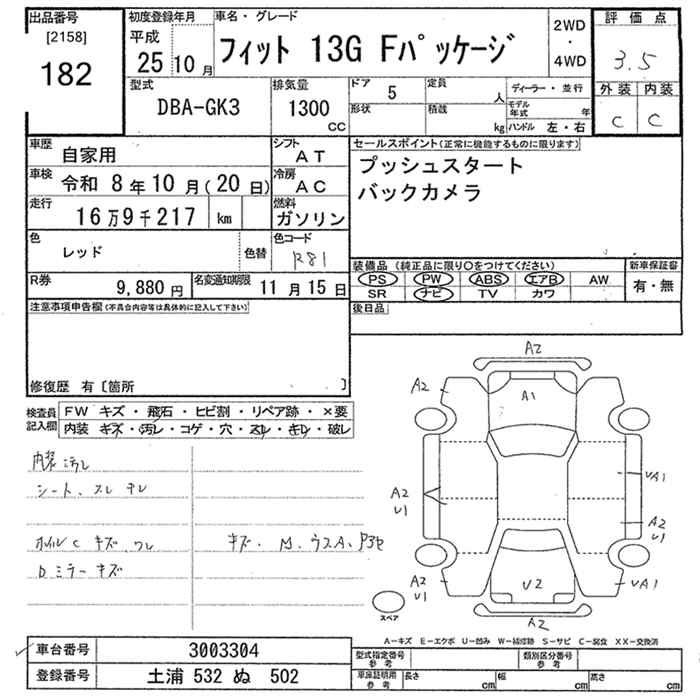 出品番号
[2158]
182
初度登録年月
平成
25 10月
車名・グレード
フィット 13G Fパッケージ
2WD
・
4WD
評価点
3.5
外装 内装
C C
型式
DBA-GK3
排気量
1300
CC
ドア
5
形状
定員
人
積載
kg
ディーラー・並行
モデル年式
年
ハンドル 左・右
車歴
自家用
シフト
AT
車検
令和 8年10月(20日)
冷房
AC
走行
16万9千217 km
燃料
ガソリン
色
レッド
色替
色コード
R81
R券
9,880円
名変通知期限
11月15日
セールスポイント(正常に機能するものに限ります)
プッシュスタート
バックカメラ
装備品 (純正品に限り○をつけてください)
PS PW ABS エアB AW
SR ナビ TV カワ
新車保証書
有・無
後日品
注意事項申告欄(不具合内容等は具体的に記入して下さい)
修復歴 有〔箇所 〕
検査員
記入欄
FW キズ・飛石・ヒビ割・リペア跡・×要
内装 キズ・汚レ・コゲ・穴・スレ・キレ・破レ
内装汚レ
シート、スレ チレ
ホイルC キズ ワレ
Dミラー キズ
キズ・M、ウスA、
A2
A2
A1
A2
UA1
A2
U1
A2
U1
A2
U1
U2
UA1
A2
スペア
A-キズ E-エクボ U-凹み W-補修跡 S-サビ C-腐食 XX-交換済
車台番号
3003304
登録番号
土浦 532 ぬ 502
型式指定番号
参考
類別区分番号
参考
車庫証明用
参考
長さ
cm
幅
cm
高さ
cm